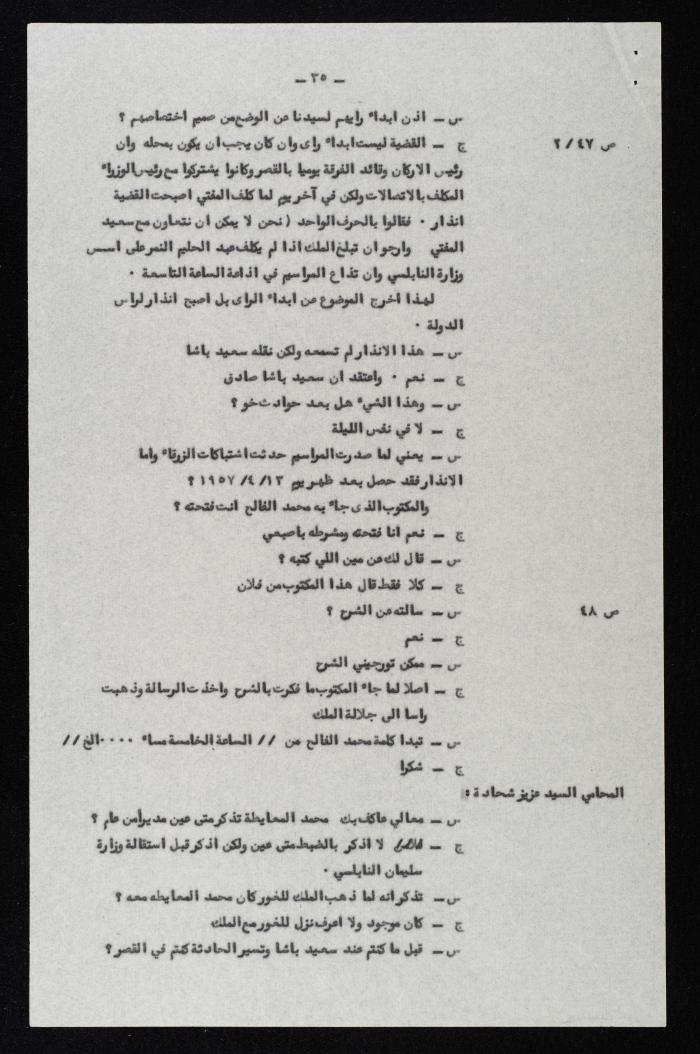 ـ ٣٥ ـ
س ـ اذن ابداء رايهم لسيدنا عن الوضع من صميم اختصاصهم ؟
ص ٢/٤٧
ج ـ القضية ليست ابداء راى وان كان يجب ان يكون بمحله وان
رئيس الاركان وقائد الفرقة يوميا بالقصر وكانوا يشتركوا مع رئيس الوزراء
المكلف بالاتصالات ولكن في آخر يوم لما كلف المفتي اصبحت القضية
انذار ٠ فقالوا بالحرف الواحد ( نحن لا يمكن ان نتعاون مع سعيد
المفتي وارجو ان تبلغ الملك اذا لم يكلف عبد الحليم النمر على اسس
وزارة النابلسي وان تذاع المراسيم في اذاعة الساعة التاسعة ٠
لهذا اخرج الموضوع عن ابداء الراى بل اصبح انذار لراس
الدولة ٠
س ـ هذا الانذار لم تسمعه ولكن نقله سعيد باشا
ج ـ نعم ٠ واعتقد ان سعيد باشا صادق
س ـ وهذا الشيء هل بعد حوادث خو ؟
ج ـ لا في نفس الليلة
س ـ يعني لما صدرت المراسيم حدثت اشتباكات الزرقاء واما
الانذار فقد حصل بعد ظهر يوم ١٣/ ٤/ ١٩٥٧ ؟
والمكتوب الذى جاء به محمد الفالح انت فتحته ؟
ج ـ نعم انا فتحته ومشرطه باصبعي
س ـ قال لك من مين اللي كتبه ؟
ج ـ كلا فقط قال هذا المكتوب من فلان
ص ٤٨
س ـ سالته عن الشرح ؟
ج ـ نعم
س ـ ممكن تورجيني الشرح
ج ـ اصلا لما جاء المكتوب ما فكرت بالشرح واخذت الرسالة وذهبت
راسا الى جلالة الملك
س ـ تبدا كلمة محمد الفالح من // الساعة الخامسة مساء ٠٠٠٠ الخ //
ج ـ شكرا
المحامي السيد عزيز شحادة :
س ـ معالي عاكف بك محمد المعايطة تذكر متى عين مدير أمن عام ؟
ج ـ لا اذكر بالضبط متى عين ولكن اذكر قبل استقالة وزارة
سليمان النابلسي ٠
س ـ تذكر انه لما ذهب الملك للغور كان محمد المعايطه معه ؟
ج ـ كان موجود ولا اعرف نزل للغور مع الملك
س ـ قبل ما كنتم عند سعيد باشا وتسير الحادثة كنتم في القصر ؟